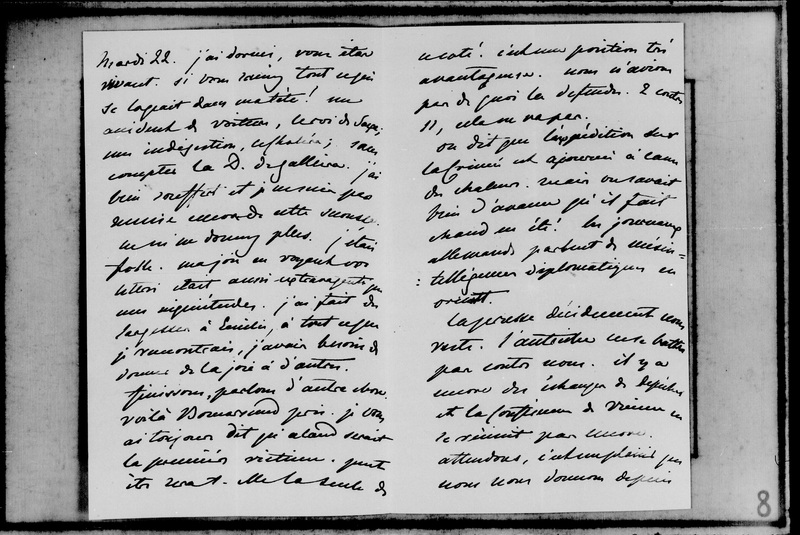 mardi 22. j'ai dormi, vous étiez
vivant. si vous saviez tout ce qui
se logeait dans ma tête! un
accident de voiture, le roi de
une indigestion, le choléra; sans
compter la D. de galliera. j'ai
bien souffert et je ne suis pas
remise encore de cette secousse.
ne me le donnez plus. j'étais
folle. ma joie en voyant vos
lettres était aussi extravagante que
mes inquiétudes. j'ai fait des
largesses à Emilie, à tout ce que
je rencontrais, j'avais besoin de
donner de la joie à d'autres.
finissons, parlons d'autre chose.
voilà Bomarsund pris. je vous
ai toujours dit qu'aland serait
la première victime. peut
être sera t. elle la seule de
côté. c'est une position très
avantageuse. nous n'avions
pas de quoi la défendre. 2 contre
11, cela ne va pas.
on dit que l'expédition sur
la Crimée est ajournée à cause
des chaleurs. mais on savait
bien d'avance qu'il fait
chaud en été! les journaux
allemands parlent de mésin=
=telligences diplomatiques en
orient.
La prusse décidément nous
reste. l'autriche ne se battra
pas contre nous. il y a
encore des échanges de dépêches
et la Conférence de vienne ne
se réunit pas encore.
attendons, c'est
nous nous donnons depuis
8